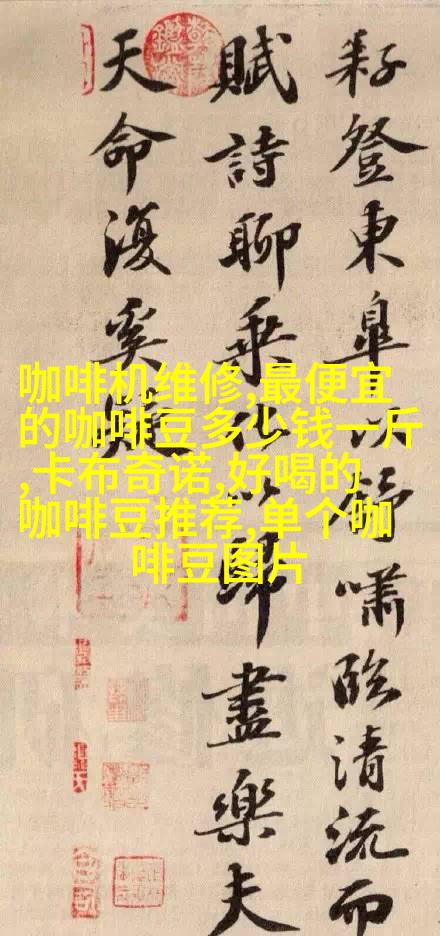 耔登東皐以舒嘯臨清流而
賦詩聊乘化以歸盡樂夫
天命復奚疑
咖啡机维修,最便宜
的咖啡豆多少钱一斤
,卡布奇诺,好喝的
咖啡豆推荐,单个咖
啡豆图片